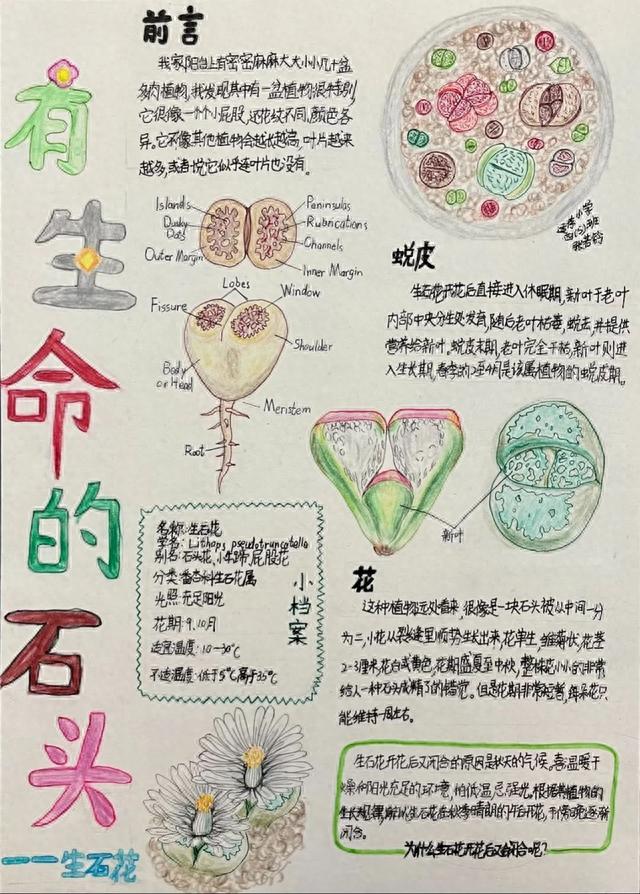 有生命的石头
——生石花
前言
我家阳台上有密密麻麻大大小小几十盆
多肉植物,我发现其中有一盆植物很特别,
它很像一个个小屁股,还花纹不同,颜色各
异。它不像其他植物会越长越高,叶片越来
越多,或者说它似乎连叶片也没有。
Islands
Dusky
Dots
Outer Margin
Peninsulas
Rubrications
Channels
Inner Margin
Lobes
Fissure
Window
Shoulder
Body
or Head
Meristem
Root
小学
班
蜕皮
生石花开花后直接进入休眠期,新叶于老叶
内部中央分生处发育,随后老叶枯萎,蜕去,并提
营养给新叶。蜕皮末期,老叶完全干枯,新叶则进
入生长期。春季的2至4月是该属植物的蜕皮期。
新叶
小档案
名称:生石花
学名:Lithops pseudotruncatella
别名:石头花、小牛蹄、屁股花
分类:番杏科生石花属
光照:充足阳光
花期:9、10月
适宜温度:10-30℃
不适温度:低于5℃高于35℃
花
这种植物远处看来,很像是一块石头被从中间一分
为二,小花从裂缝里顺势生长出来,花单生,雏菊状,花茎
2-3厘米,花白或黄色,花期盛夏至中秋,整株花小小的非常
给人一种石头成精了的错觉。但是花期非常短暂,每朵花只
能维持一周左右。
生石花开花后又闭合的原因是秋天的气候。喜温暖干
燥和阳光充足的环境,怕低温,忌强光,根据植物的
生长规律,所以生石花在秋季晴朗的午后开花,于傍晚逐渐
闭合。
为什么生石花开花后又会闭合呢?